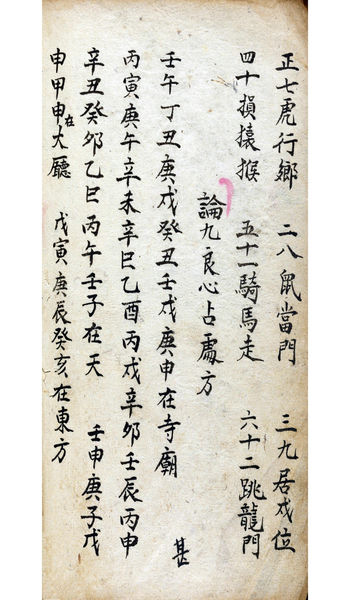 正七虎行鄉　二八鼠當門　三九居戌位
四十損猿猴　五十一騎馬走　六十二跳龍門
論九良心占處方
壬午丁丑庚戌癸丑壬戌庚申在寺廟
丙寅庚午辛未辛巳乙酉丙戌辛夘壬辰丙申　甚
辛丑癸夘乙巳丙午壬子在天　壬申庚子戊
申甲申在大廳　戊寅庚辰癸亥在東方